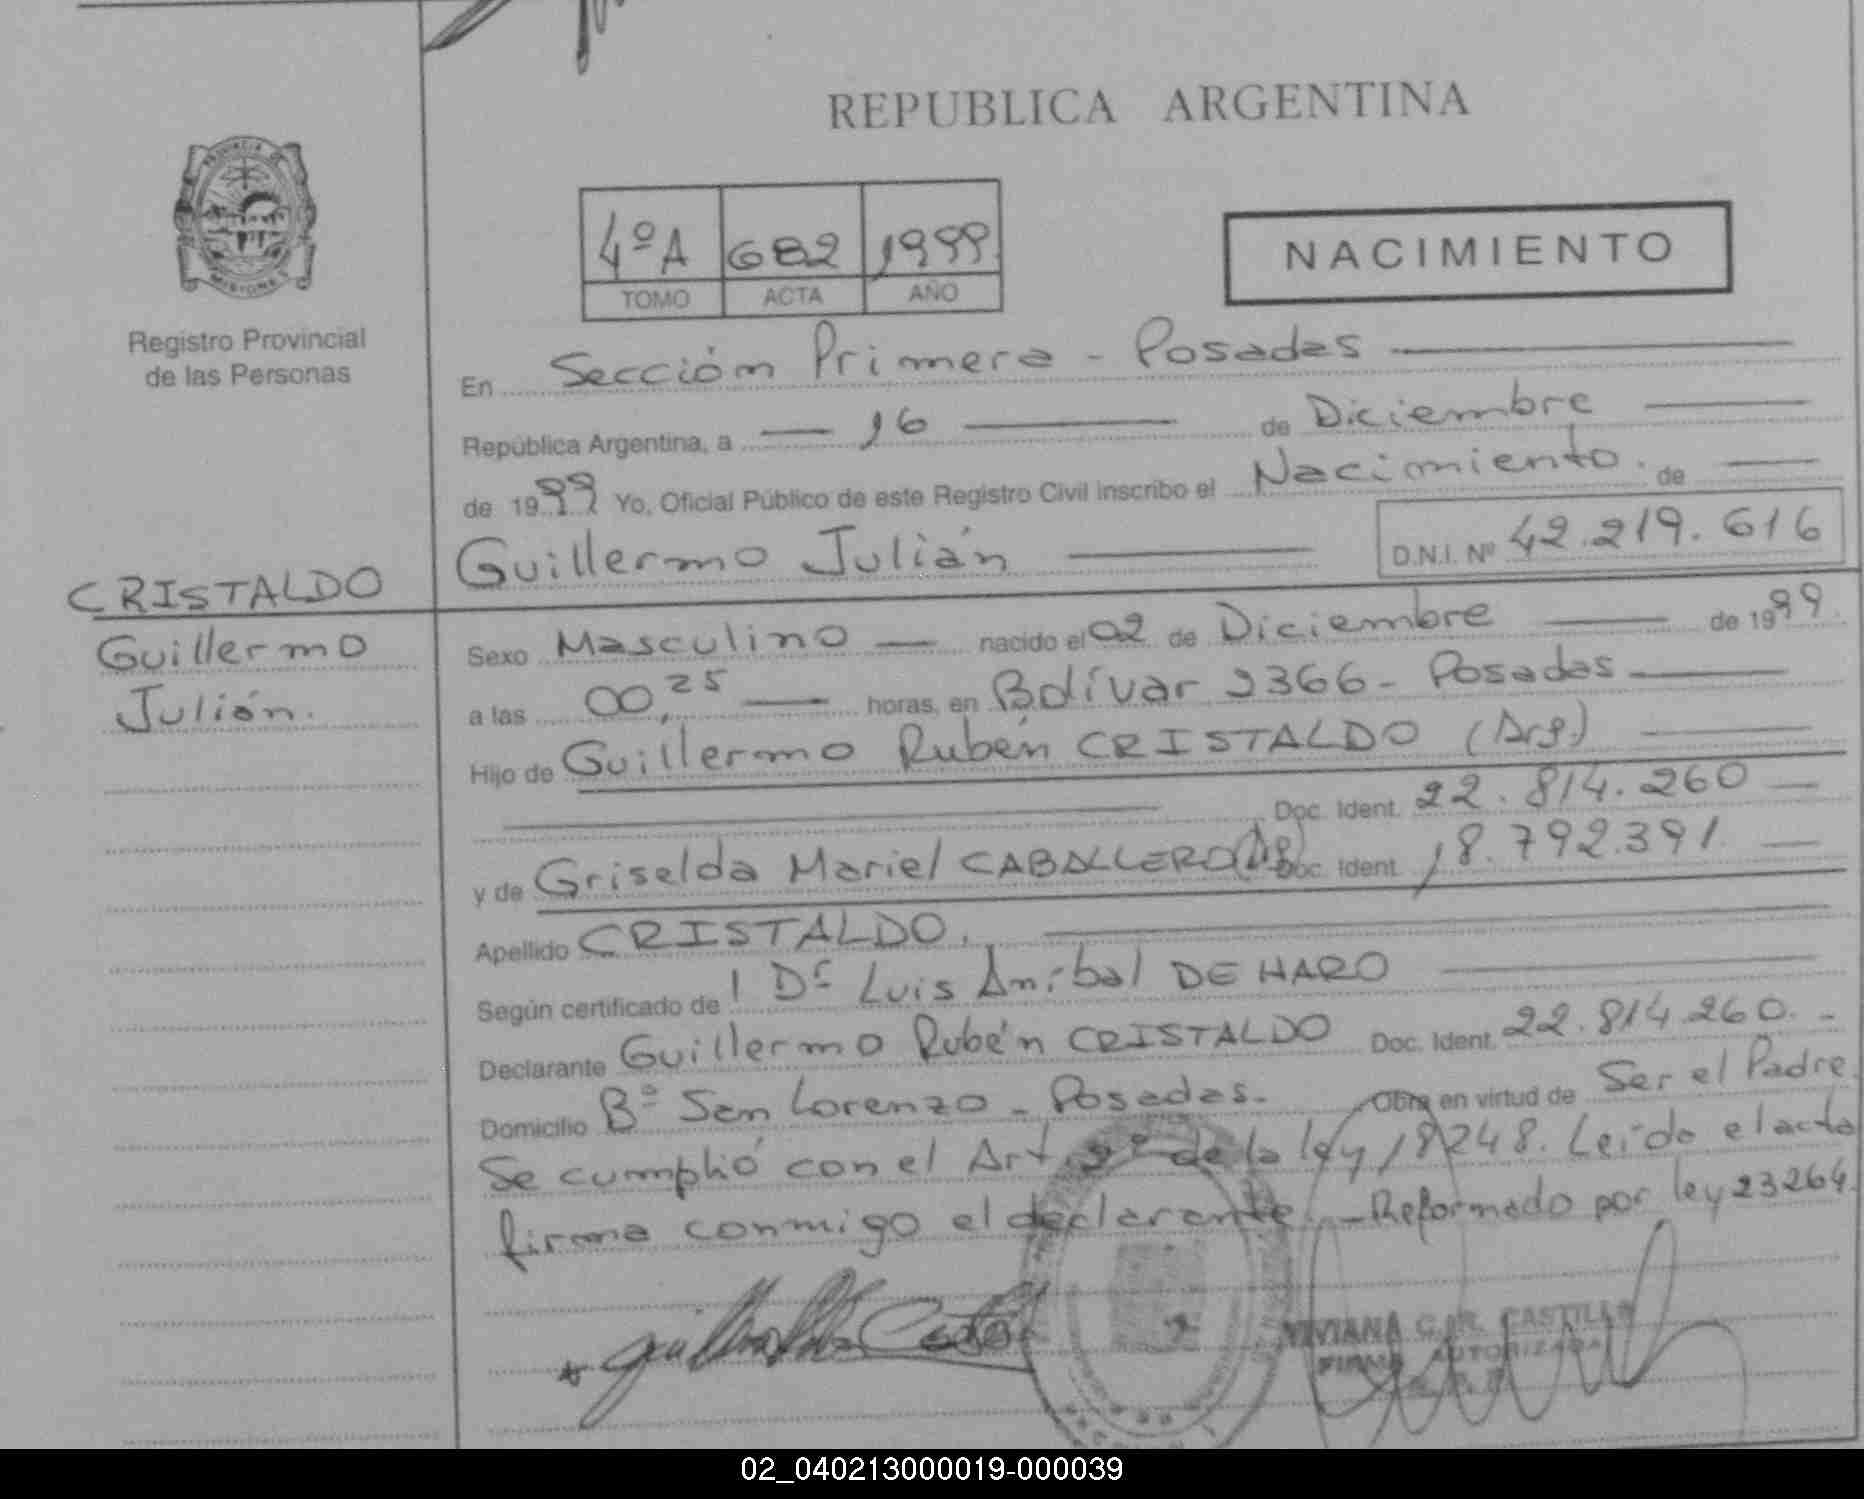 REPUBLICA ARGENTINA
PROVINCIA DE
MISIONES
Registro Provincial
de las Personas
4º A 682 1999
TOMO ACTA AÑO
NACIMIENTO
En Sección Primera - Posadas
República Argentina, a 16 de Diciembre
de 1999 Yo, Oficial Público de este Registro Civil inscribo el Nacimiento. de
Guillermo Julián D.N.I. Nº 42.219.616
CRISTALDO
Guillermo
Julián.
Sexo Masculino nacido el 02 de Diciembre de 1999.
a las 00,25 horas, en Bolívar 2366 - Posadas
Hijo de Guillermo Rubén CRISTALDO (Arg.)
Doc. Ident. 22.814.260
y de Griselda Mariel CABALLERO (Arg) Doc. Ident. 18.792.391
Apellido CRISTALDO.
Según certificado de l Dr Luis Aníbal DE HARO
Declarante Guillermo Rubén CRISTALDO Doc. Ident. 22.814.260. -
Domicilio Bº San Lorenzo - Posadas. Obra en virtud de Ser el Padre.
Se cumplió con el Art. 2º de la ley 18248. Leído el acta
firma conmigo el declarante. - Reformado por ley 23264.
VIVIANA C. R. CASTILLO
FIRMA AUTORIZADA
02_040213000019-000039